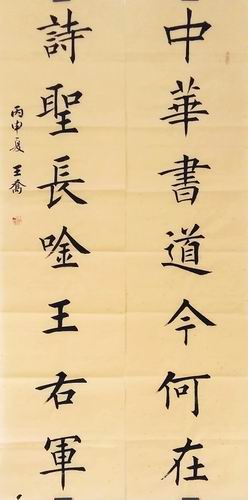 中華書道今何在
詩聖長唫王右軍
丙申夏 王喬